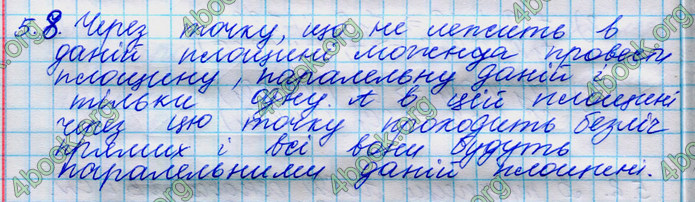 5.8. Через точку, що не лежить в
даній площині можна провести
площину, паралельну даній і
тільки одну. А в цій площині
через цю точку проходить безліч
прямих і всі вони будуть
паралельними даній площині.